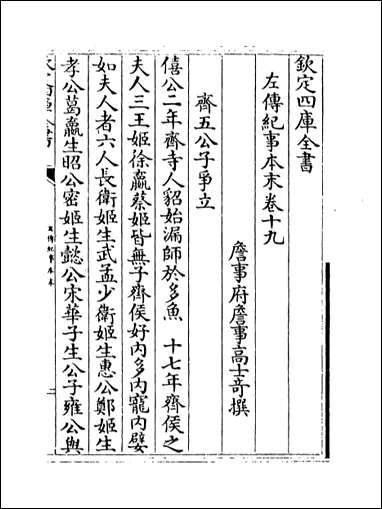 欽定四庫全書
左傳紀事本末卷十九
詹事府詹事高士奇撰
齊五公子爭立
僖公二年齊寺人貂始漏師於多魚 十七年齊侯之
夫人三王姬徐嬴蔡姬皆無子齊侯好内多内寵内嬖
如夫人者六人長衛姬生武孟少衛姬生惠公鄭姬生
孝公葛嬴生昭公密姬生懿公宋華子生公子雍公與
左傳紀事本末